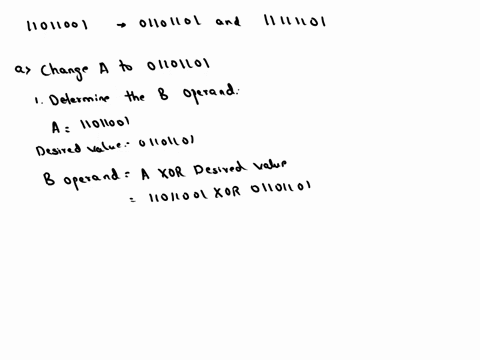 11011001 → 01101101 and 11111101
a) Change A to 01101101
1. Determine the B operand:
A = 11011001
Desired value:- 01101101
B operand = A XOR Desired value
= 11011001 XOR 01101101